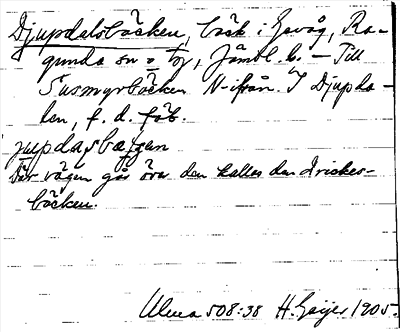 Djupdalsbäcken, bäck i Gevåg, Ra-
gunda sn o tg, Jämtl. l. – Till
Susmyrbäcken N-ifrån. I Djupda-
len, f. d. fäb.
jupdasbæjjan
Där vägen går över den kallas den Drickes-
bäcken.
Ulma 508:38 H. Geijer 1905.